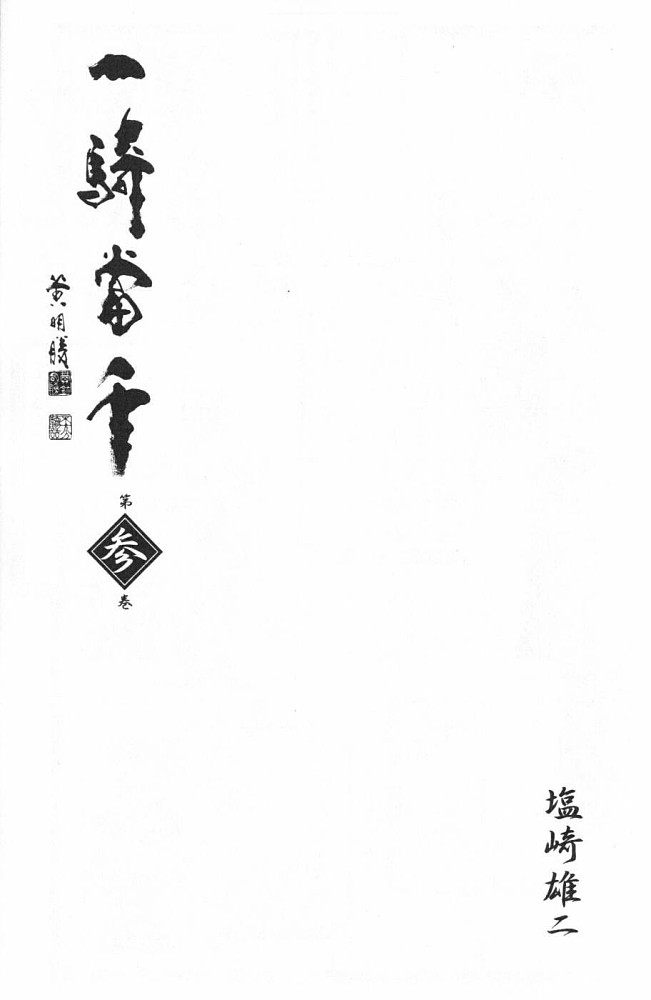 塩崎雄二
一騎當千
黄明勝
第
参
巻